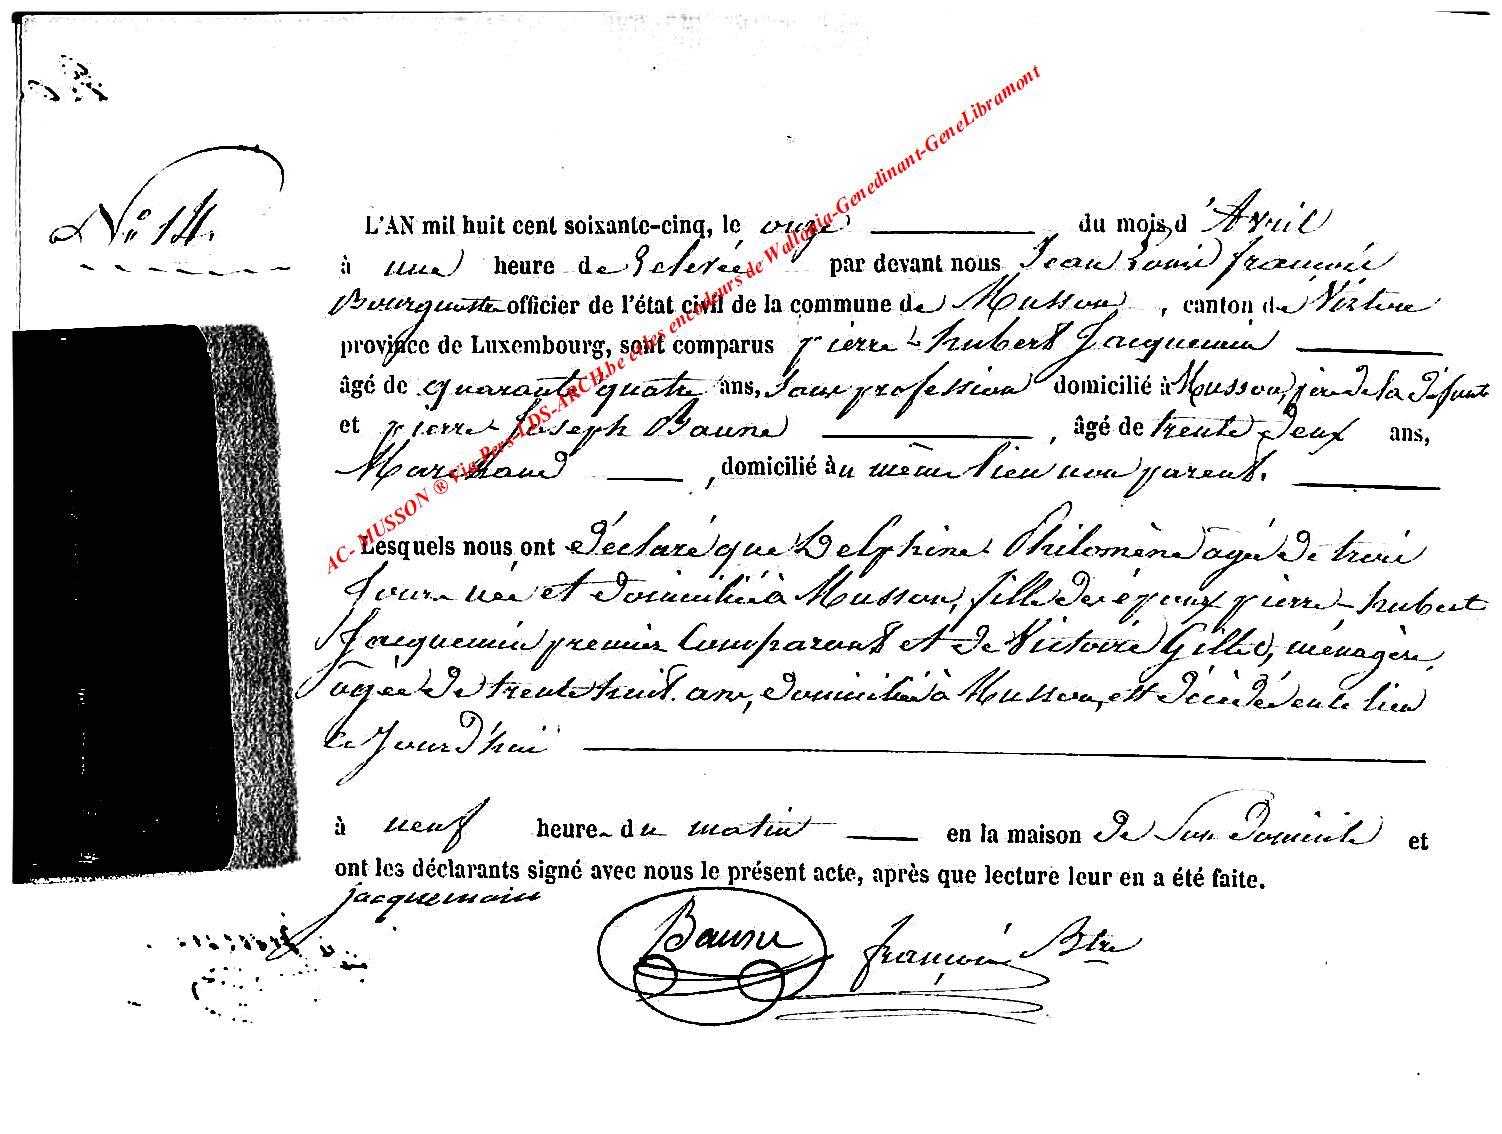 N° 14.
L'AN mil huit cent soixante-cinq, le onze du mois d'Avril
à une heure de relevée par devant nous Jean Louis françois
Bourguotte officier de l'état civil de la commune de Musson, canton de Virton
province de Luxembourg, sont comparus pierre-hubert Jacquemin
âgé de quarante quatre ans, sans profession domicilié à Musson, père de la défunte
et pierre Joseph Baune, âgé de trente deux ans,
Marchand, domicilié au même lieu non parent.
Lesquels nous ont déclaré que Delphine Philomène agée de trois
Jours née et domiciliée à Musson, fille des époux pierre-hubert
Jacquemin premier Comparant et de Victoire Gillet, ménagère,
agée de trente huit ans, domiciliée à Musson, est décédée en ce lieu
ce Jourd'hui
à neuf heure du matin en la maison de Son domicile et
ont les déclarants signé avec nous le présent acte, après que lecture leur en a été faite.
jacquemain
Baune françois Btre
AC- MUSSON ® Via Pers-LDS-ARCH.be et les encodeurs de Wallonia-Genedinant-GeneLibramont